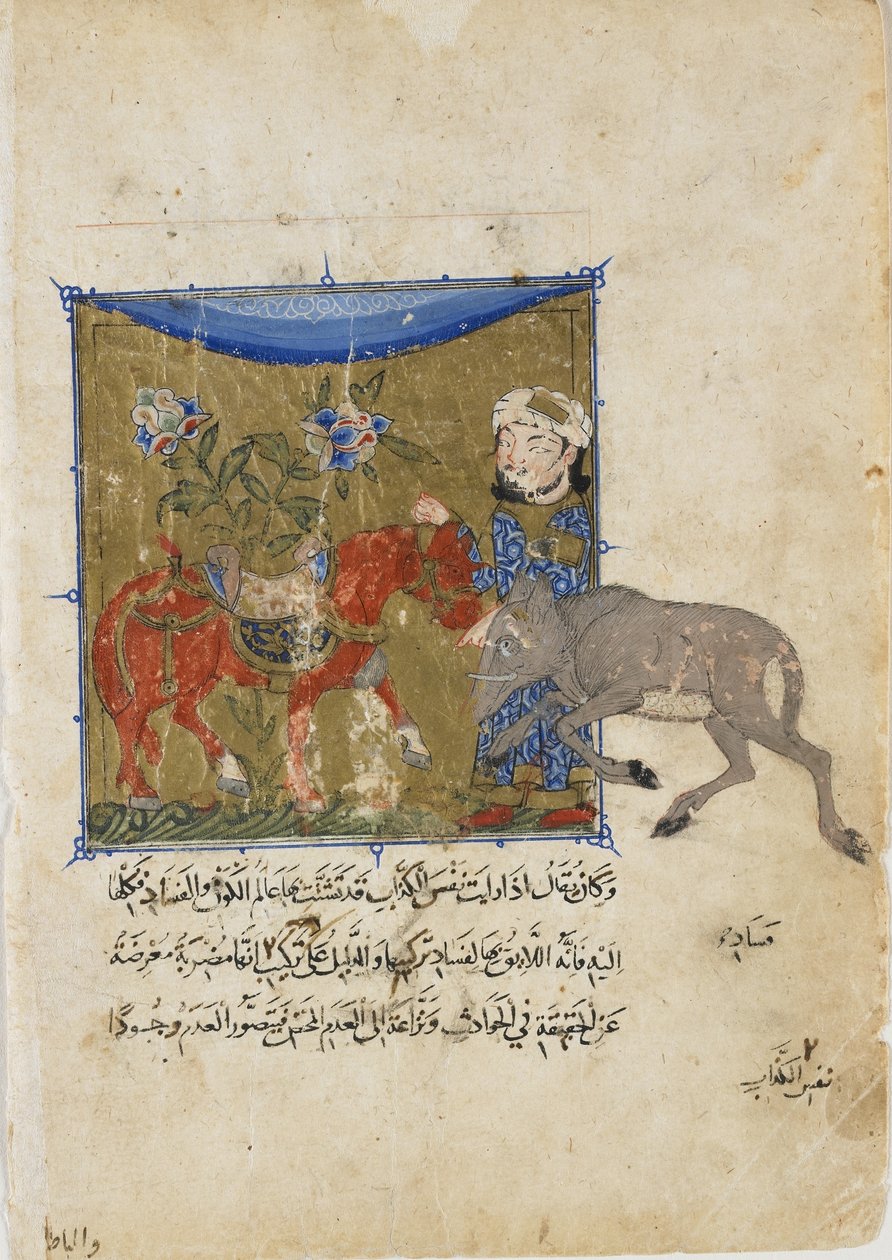 وكان يقال اذا رايت نفس الكذاب قد تشبثت بها عالم الكون والفساد فكلها
اليه فانه اللايق بها لفساد تركيبها والدليل على تركيب ٢ انها مضربة معرضة
عن الحقيقة في الحوادث ونزاعة الى العدم المحض فيتصور العدم وجودا
فساد
٢
نفس الكذاب
والباط